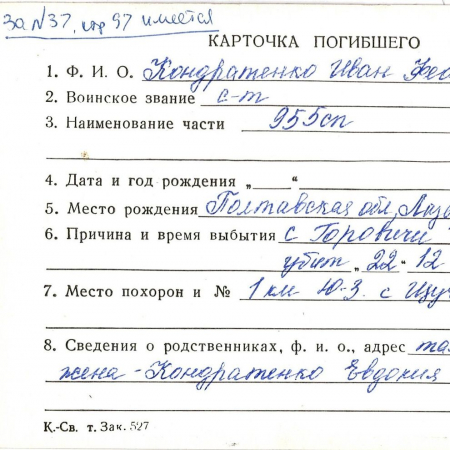 За №37, стр 97 имеется
КАРТОЧКА ПОГИБШЕГО
1. Ф. И. О. Кондратенко Иван Фео
2. Воинское звание с-т
3. Наименование части 955сп
4. Дата и год рождения „ “
5. Место рождения Полтавская обл,
6. Причина и время выбытия с Горовичи
убит „22“ 12
7. Место похорон и № 1 км Ю-З. с
8. Сведения о родственниках, ф. и. о., адрес
жена-Кондратенко Евдокия
К.-Св. т. Зак. 527